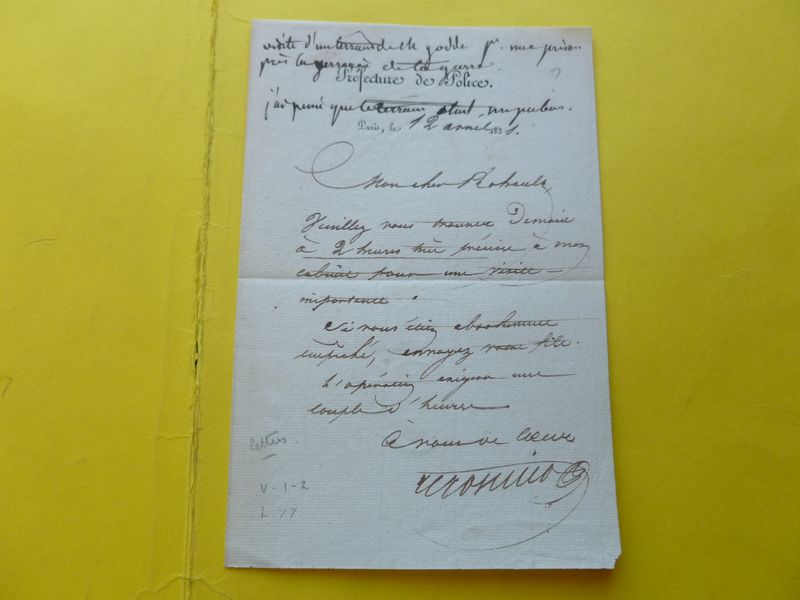 visite d'un terrain de M godde pr. une prison
près la de la guerre
Préfecture de Police.
j'ai pensé que le terrain était
Paris, le 12 avril 1831.
Mon cher Rohault,
Veuillez vous trouver Demain
à 2 heures très précise à mon
cabinet pour une visite
importante.
Si vous étiez absolument
empêché, envoyez votre fils.
L'opération exigera une
couple d'heures
à vous de cœur
Lettres
V-1-2
L 77